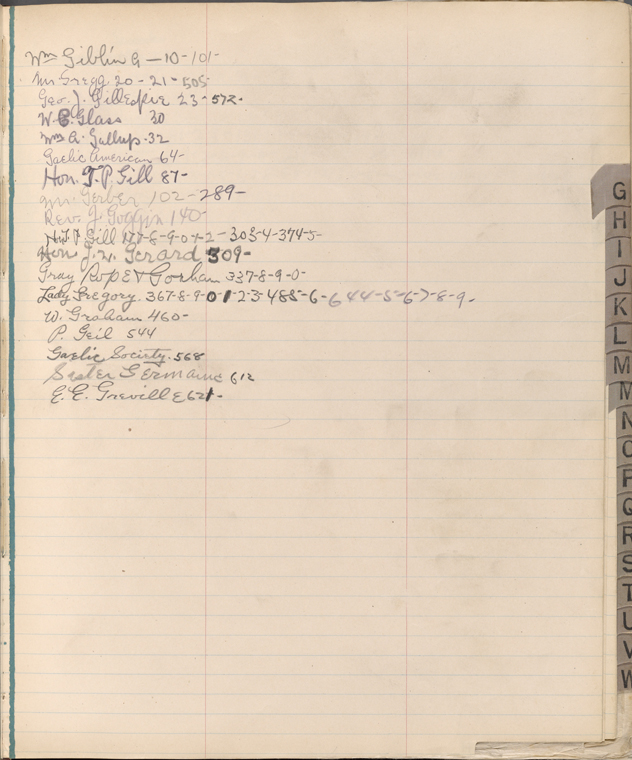 Wm Giblin G-10-101-
Mr Gregg. 20-21-505
Geo. J. Gillespie 23-572-
W.E. Glass 30
Wm A. Gallup-32
Gaelic American 64-
Hon. T.P. Gill 87-
Mr. Gerber 102-289-
Rev. J. Goggin 140-
Gill 303-4-374-5-
Hon J.W. Gerard 309-
Gray Gorham 337-8-9-0-
Lady Gregory. 367-8-9-0-1-2-3-485-6-644-5-6-7-8-9-
W. Graham 460-
P. Geil 544
Gaelic Society. 568
Sister Germaine 612
E.E. Greville 621-
G
H
I
J
K
L
M
M
N
O
P
Q
R
S
T
U
V
W